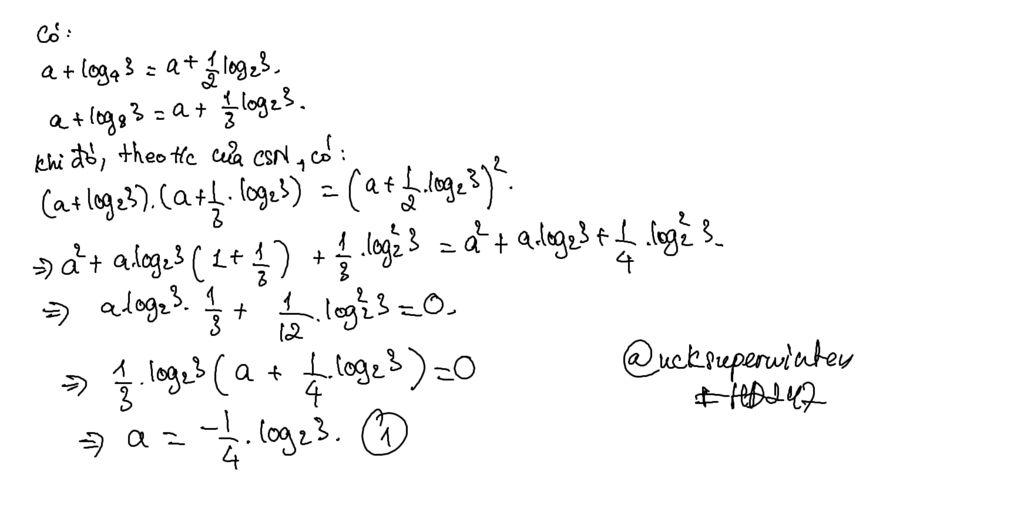 Có:
a + log₄3 = a + 1/2 log₂3.
a + log₈3 = a + 1/3 log₂3.
khi đó, theo t/c của CSN, có:
(a + log₂3).(a + 1/3 . log₂3) = (a + 1/2 . log₂3)².
⇒ a² + a.log₂3 (1 + 1/3) + 1/3 . log₂²3 = a² + a.log₂3 + 1/4 . log₂²3.
⇒ a.log₂3 . 1/3 + 1/12 . log₂²3 = 0.
⇒ 1/3 . log₂3 (a + 1/4 . log₂3) = 0
⇒ a = -1/4 . log₂3. ①
@ucksuperwinter